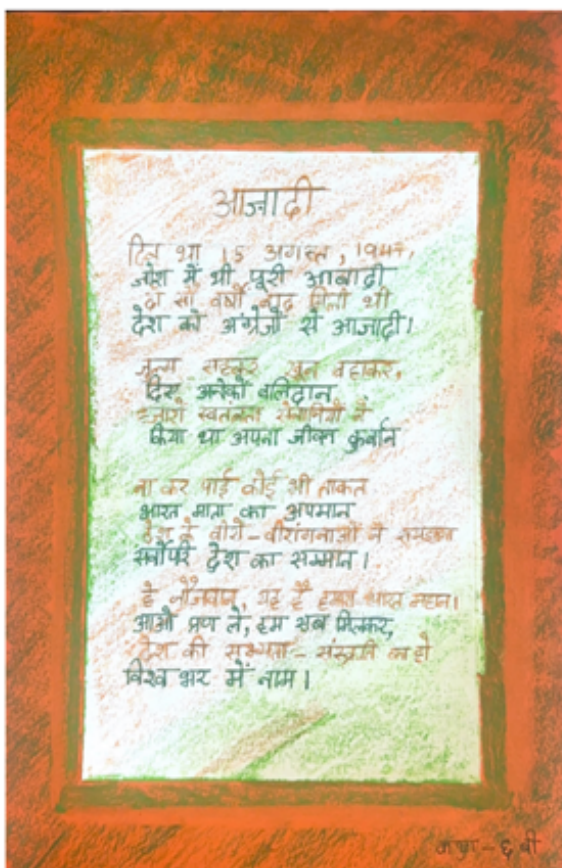 आज़ादी
दिन था 15 अगस्त, 1947,
जोश में थी पूरी आबादी
दो सौ वर्षों बाद मिली थी
देश को अंग्रेजों से आजादी।
जुल्म सहकर खून बहाकर,
दिए अनेकों बलिदान
हजारों स्वतंत्रता सेनानियों ने
किया था अपना जीवन कुर्बान
ना कर पाई कोई भी ताकत
भारत माता का अपमान
देश के वीरो-वीरांगनाओं ने समझा
सर्वोपरि देश का सम्मान।
हे नौजवान, यह है हमारा भारत महान।
आओ प्रण ले, हम सब मिलकर,
देश की सभ्यता - संस्कृति का हो
विश्व भर में नाम।
कक्षा - ६ बी